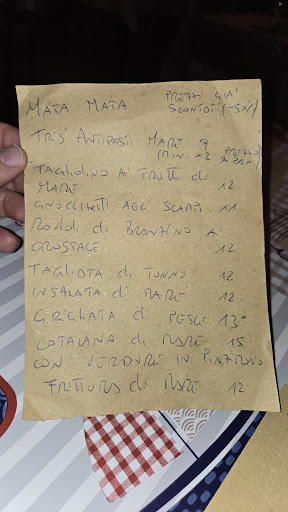 MATA MATA PREZZI GIA'
SCONTATI (-50%)
TRIS ANTIPASTI MARE 9
(MIN. x2 PREZZO
A PAX)
TAGLIOLINO AI FRUTTI di
MARE 12
GNOCCHETTI AGLI SCAMPI. 11
RAVIOLI di BRANZINO AI
CROSTACEI 12
TAGLIATA di TONNO 12
INSALATA di MARE 12
GRIGLIATA di PESCE 13
CATALANA di MARE 15
CON VERDURE IN PINZIMONIO
FRITTURA di MARE 12